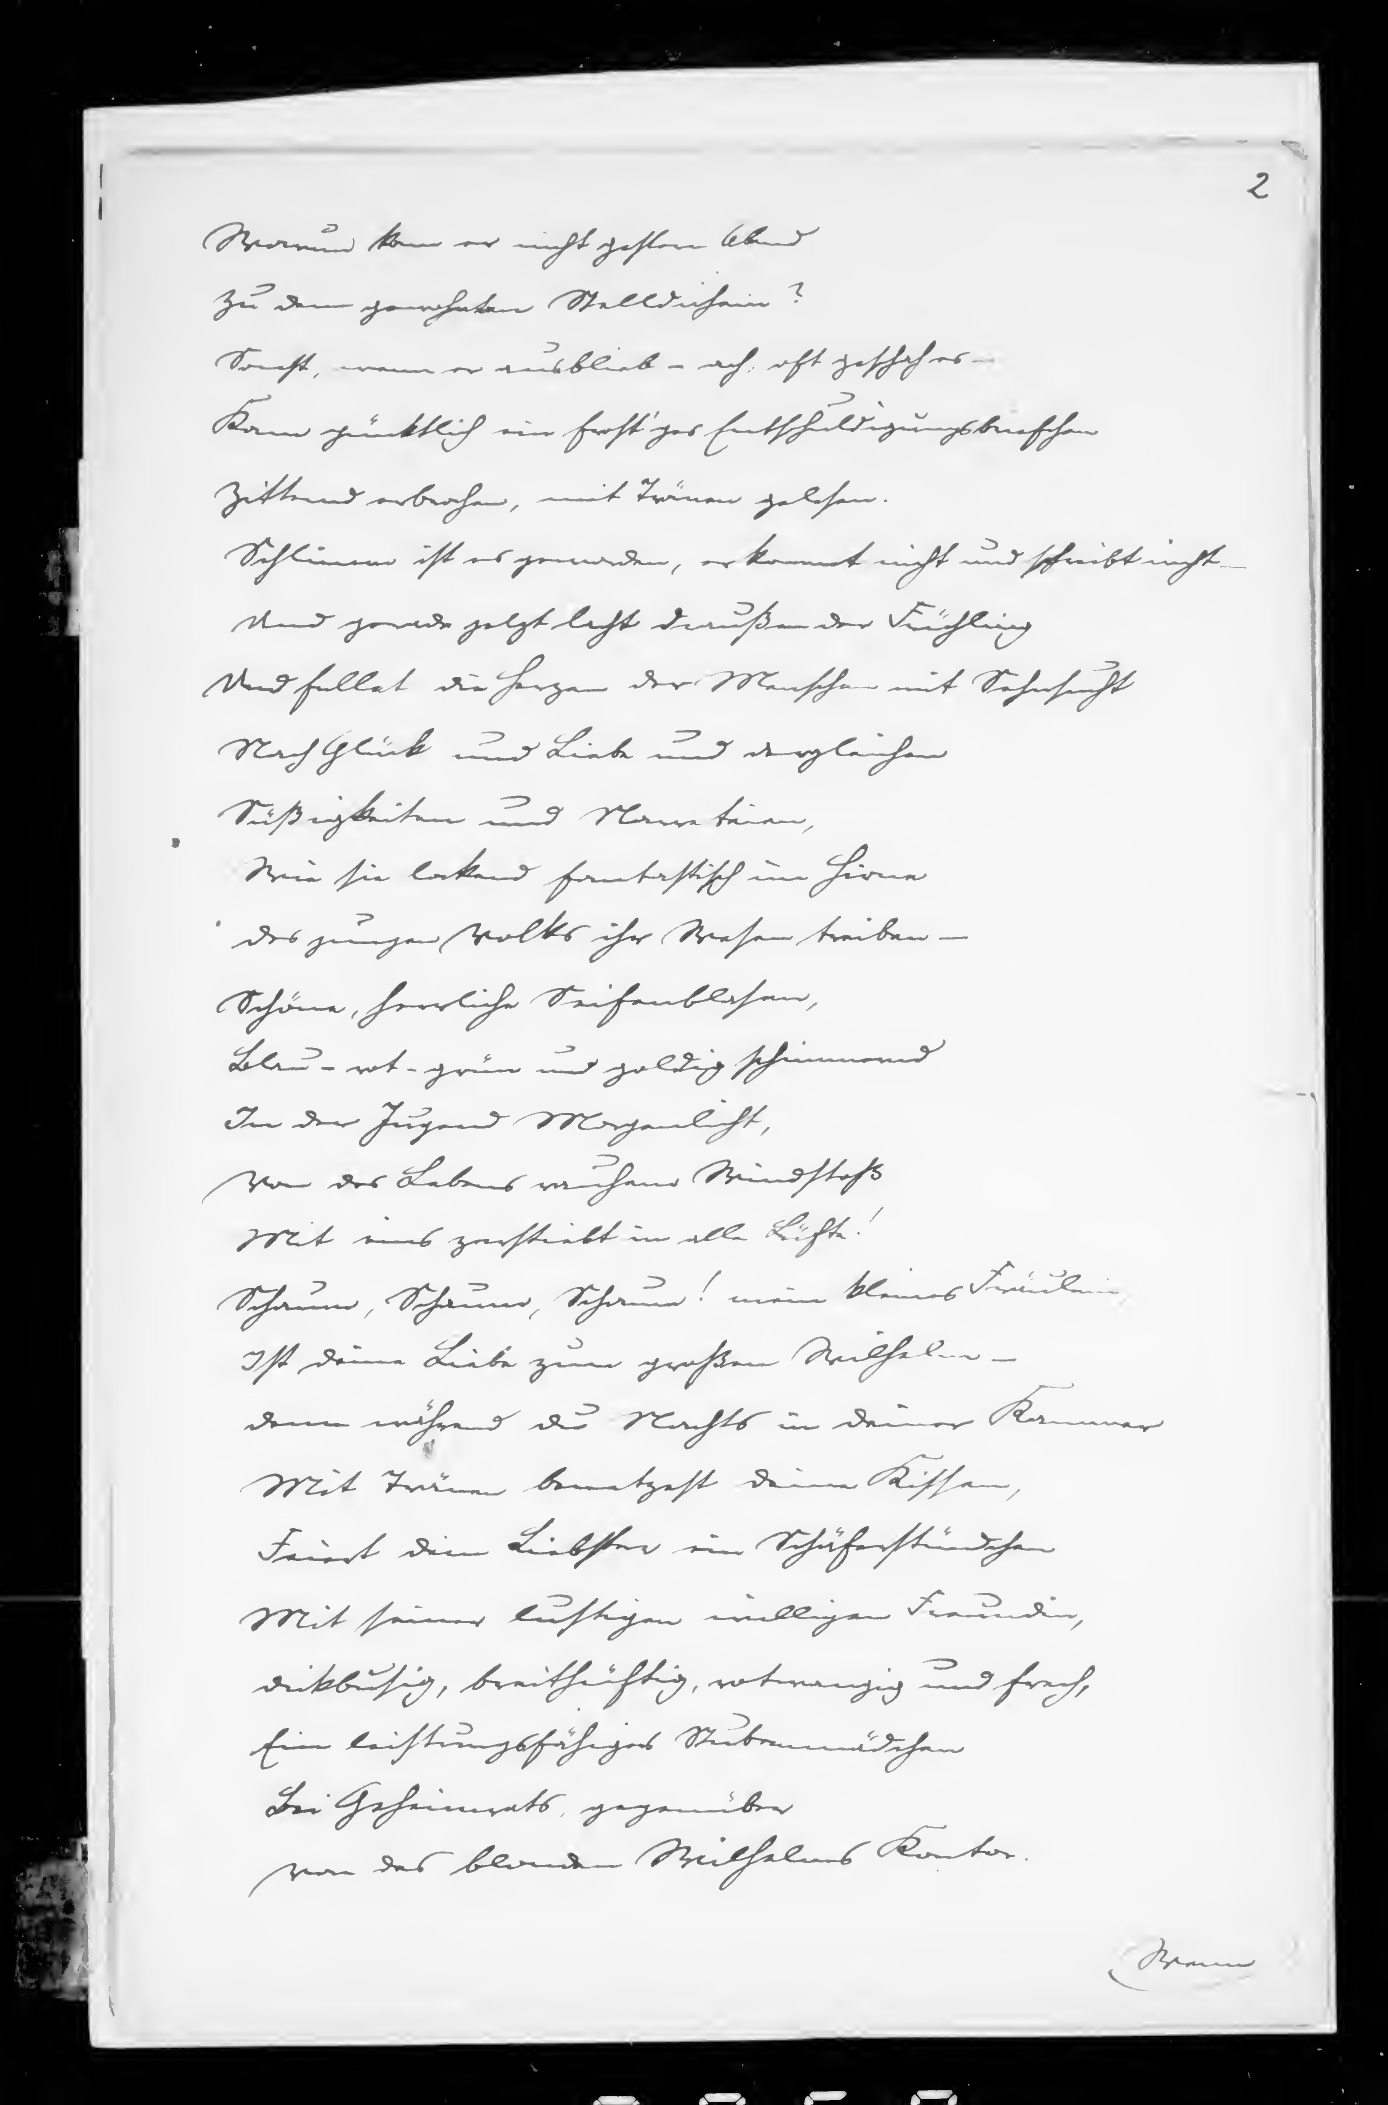 2
Warum kam er nicht gestern Abend
Zu dem gewohnten Stelldichein?
Sonst, wenn er ausblieb – ach, oft geschah es –
Kam pünktlich ein frost'ges Entschuldigungsbriefchen
Zitternd erbrochen, mit Tränen gelesen.
Schlimm ist es geworden, er kommt nicht und schreibt nicht –
Und gerade jetzt lacht draußen der Frühling
Und füllet die Herzen der Menschen mit Sehnsucht
Nach Glück und Liebe und dergleichen
Süßigkeiten und Narreteien,
Wie sie lockend fantastisch im Hirne
des jungen Volks ihr Wesen treiben –
Schöne, herrliche Seifenblasen,
Blau-rot-grün und goldig schimmernd
In der Jugend Morgenlicht,
Von des Lebens rauhem Windstoß
Mit eins zerstiebt in alle Lüfte!
Schaum, Schaum, Schaum! mein kleines Fräulein
Ist deine Liebe zum großen Wilhelm –
denn während du Nachts in deiner Kammer
Mit Tränen benetzest deine Kissen,
Feiert dein Liebster ein Schäferstündchen
Mit seiner lustigen willigen Freundin,
dickbusig, breithüftig, rotwangig und frech,
Ein leistungsfähiges Stubenmädchen
Bei Geheimrats, gegenüber
Von des blonden Wilhelms Kontor.
Wenn